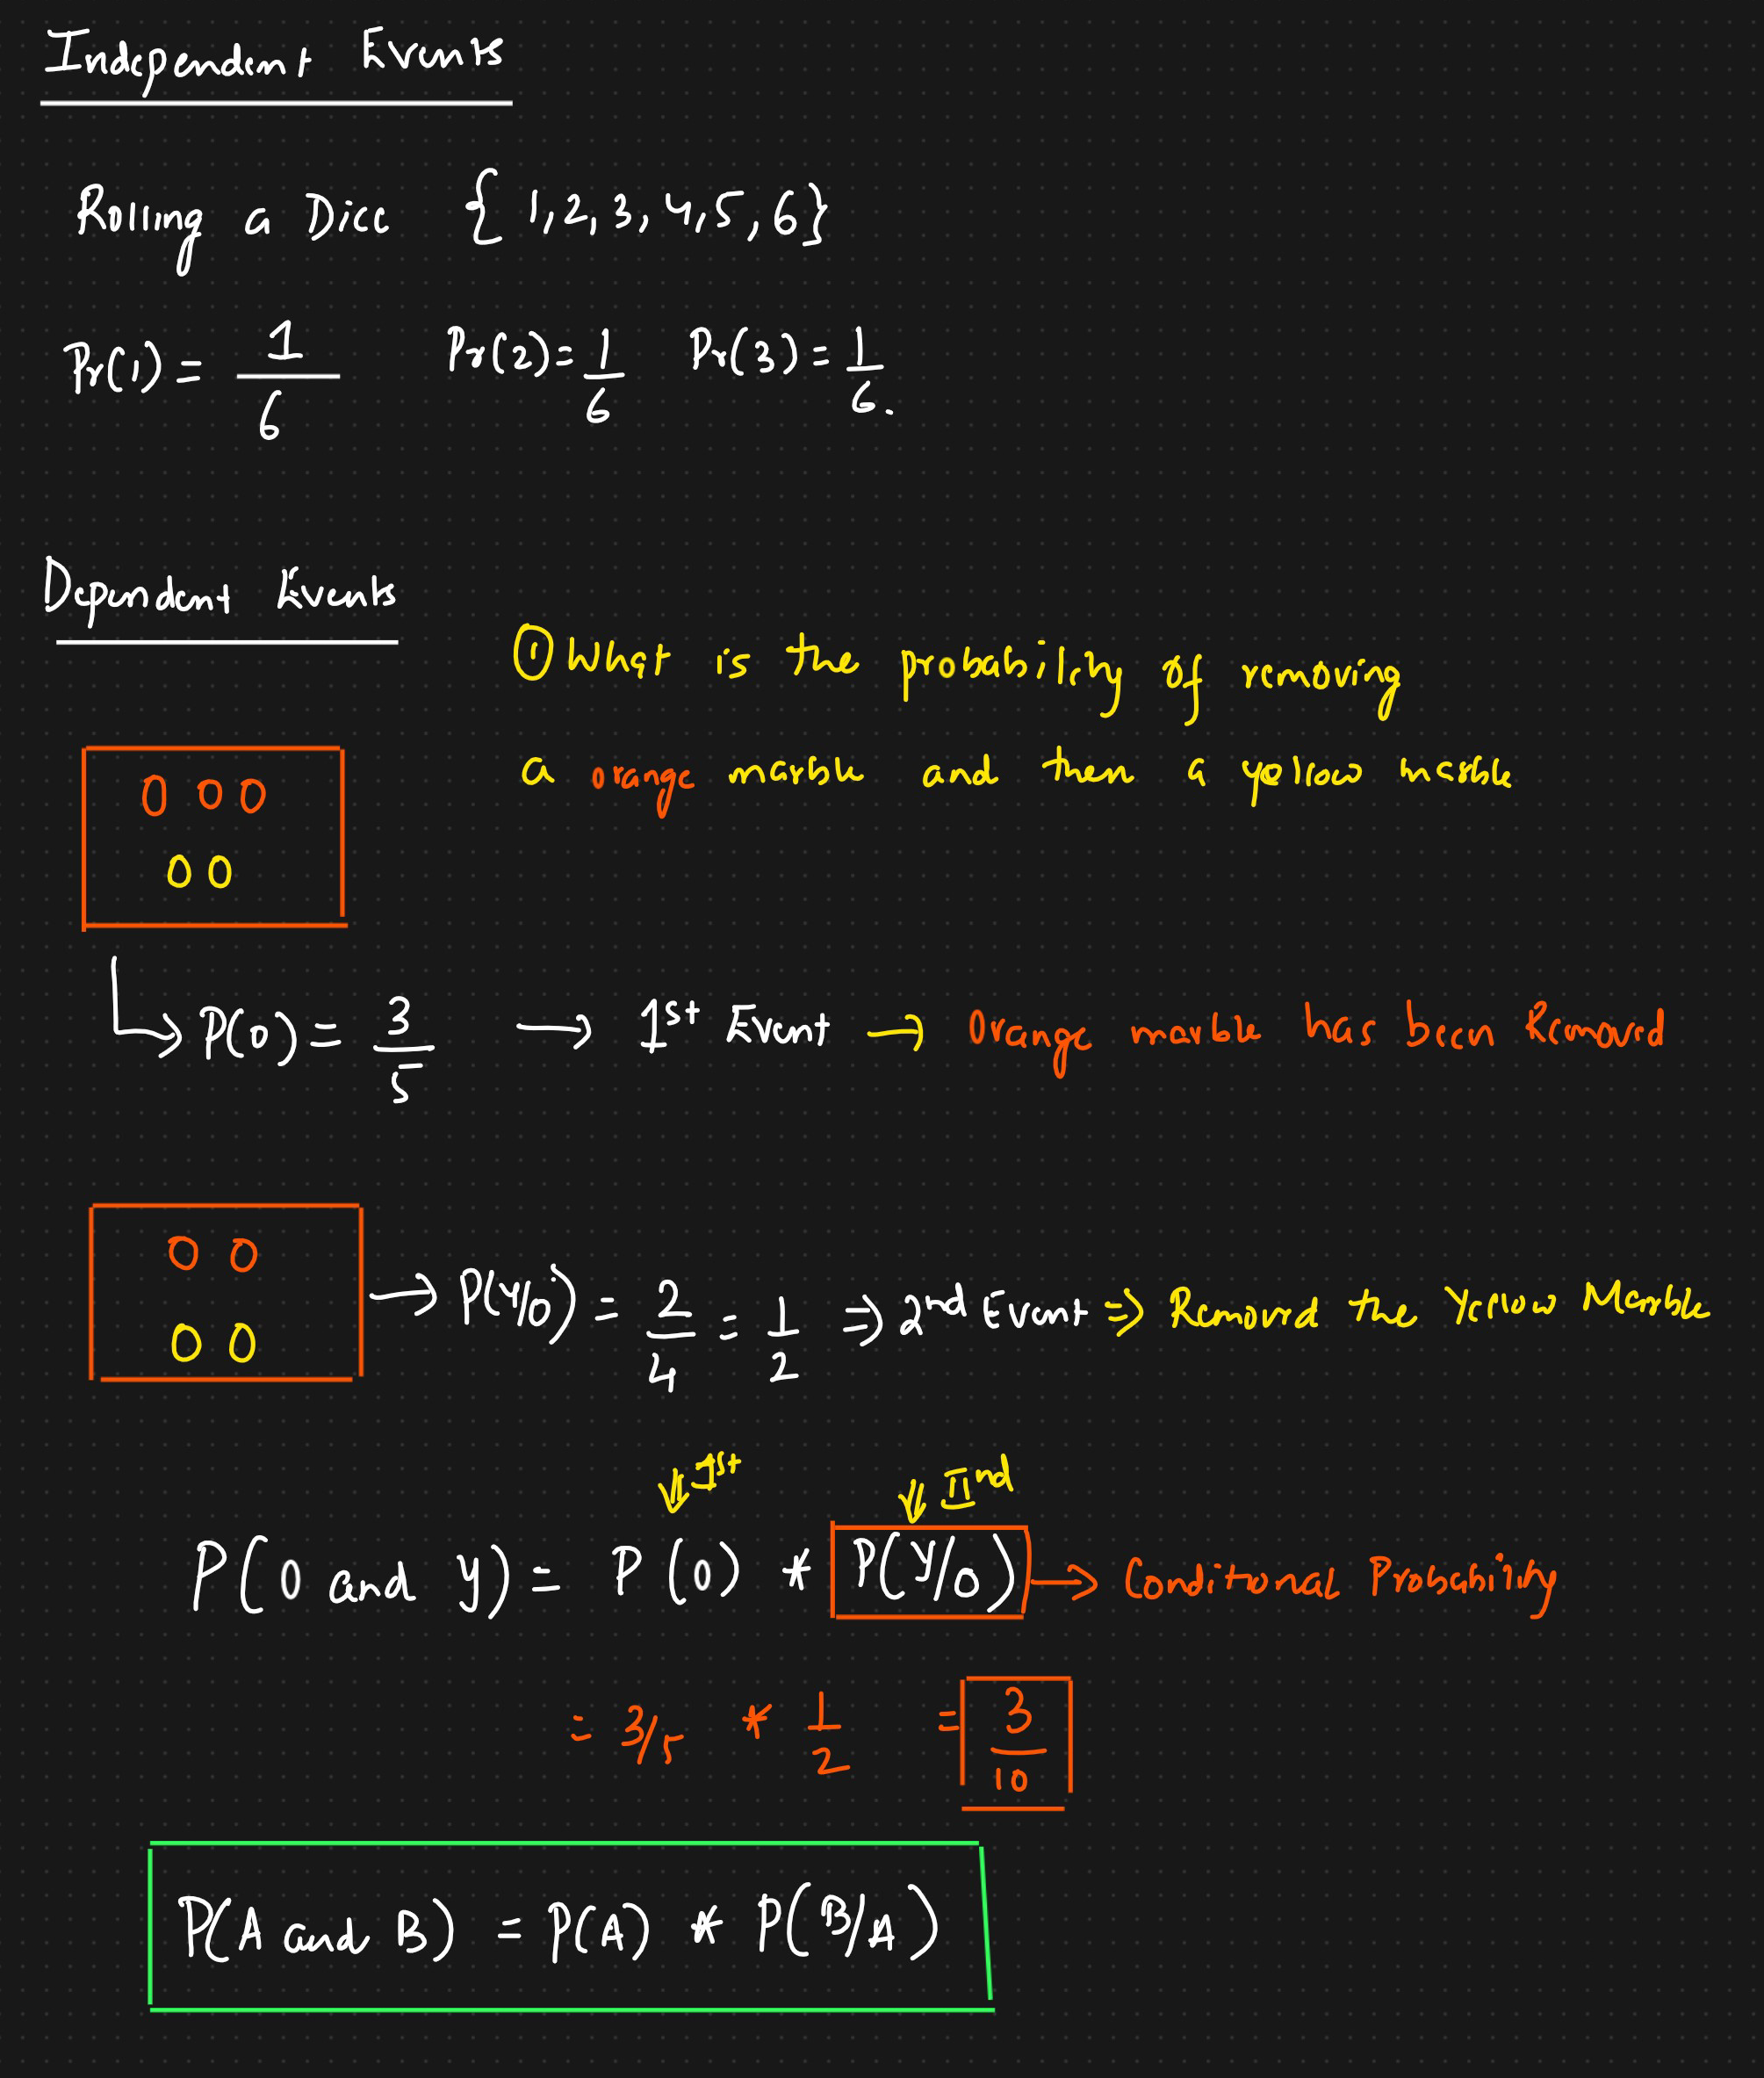 Independent Events
Rolling a Dice { 1,2,3,4,5,6}
Pr(1) = 1/6 Pr(2) = 1/6 Pr(3) = 1/6.
Dependent Events
① What is the probability of removing
a orange marble and then a yellow marble
O O O
O O
→ P(O) = 3/5 → 1st Event → Orange marble has been Removed
O O
O O
→ P(Y/O) = 2/4 = 1/2 ⇒ 2nd Event ⇒ Removed the Yellow Marble
⇓ Ist ⇓ IInd
P(O and Y) = P(O) * P(Y/O) → Conditional Probability
= 3/5 * 1/2 = 3/10
P(A and B) = P(A) * P(B/A)